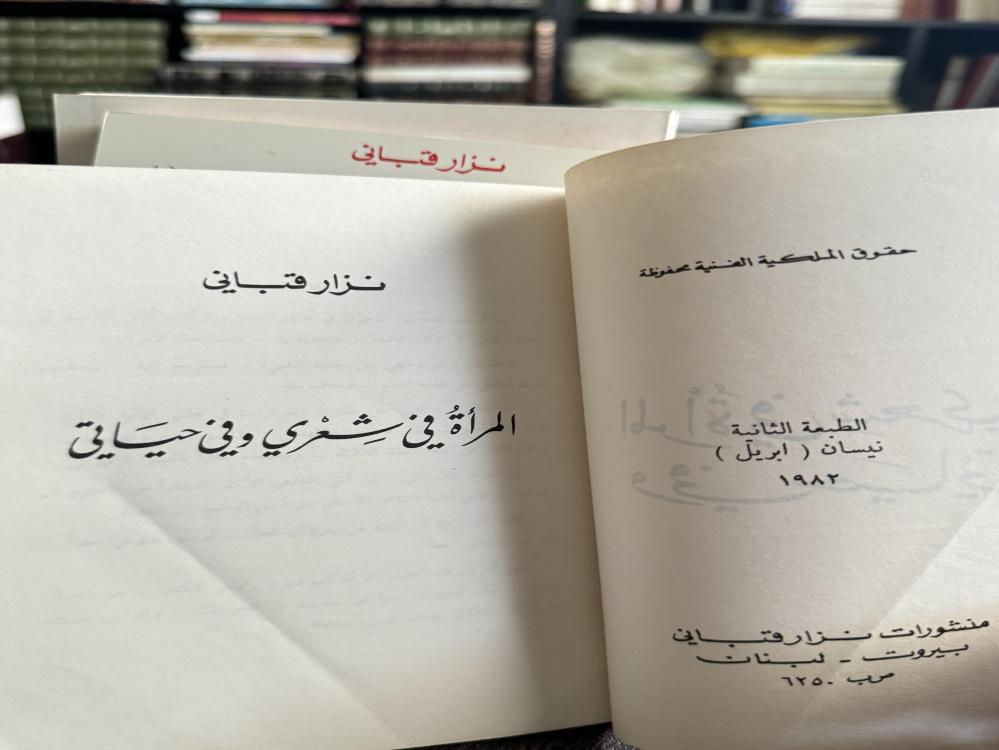 نزار قباني
حقوق الملكية الفنية محفوظة
الطبعة الثانية
نيسان ( ابريل )
١٩٨٢
منشورات نزار قباني
بيروت - لبنان
ص.ب ٦٢٥٠
نزار قباني
المرأةُ في شِعْري وفي حيَاتي